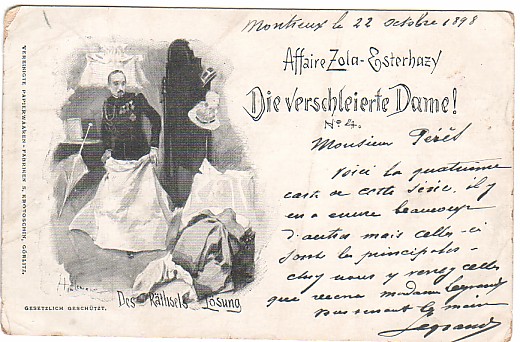 Montreux le 22 octobre 1898
Affaire Zola-Esterhazy
Die verschleierte Dame!
No 4.
Monsieur
Voici la quatrième
carte de cette série, il y
en a encore beaucoup
d'autres mais celles-ci
sont les principales
chez nous y venez celles
que Madame Legrand
la main
Legrand
Des Räthsels Lösung
GESETZLICH GESCHÜTZT.
VEREINIGTE PAPIERWAAREN-FABRIKEN S. KROTOSCHIN, GÖRLITZ.